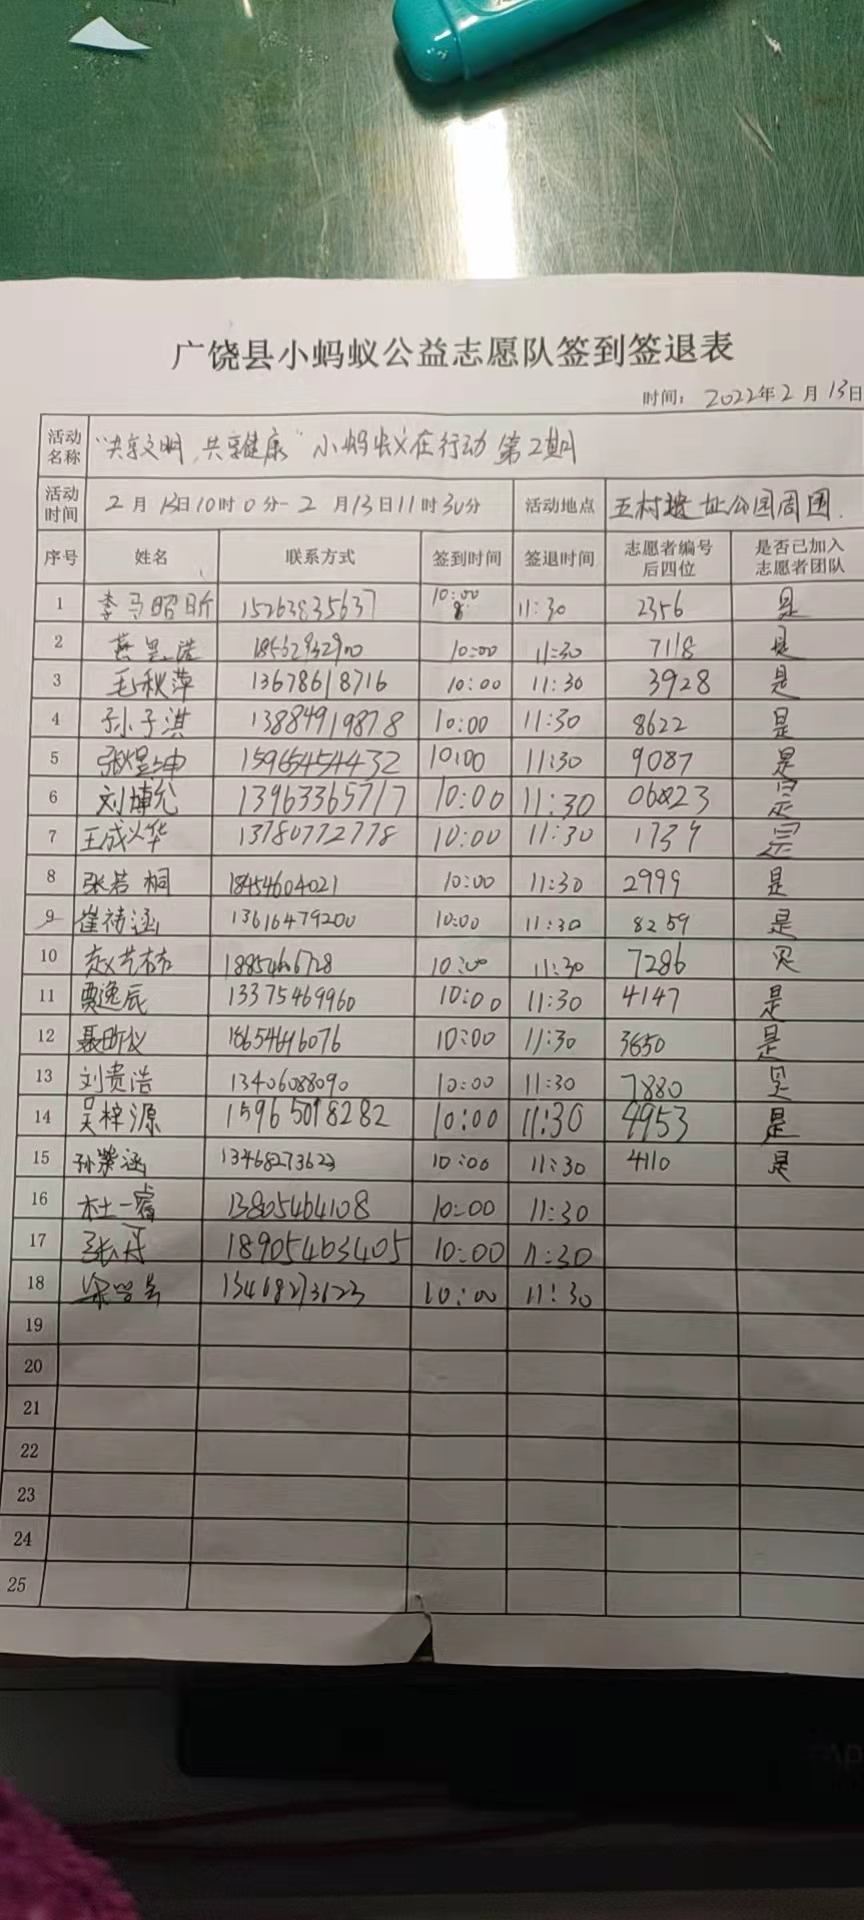 广饶县小蚂蚁公益志愿队签到签退表
时间：2022年2月13日
活动名称 "共享文明，共享健康"小蚂蚁在行动 第2期
活动时间 2月13日10时0分-2月13日11时30分 活动地点 五村遗址公园周围.
序号 姓名 联系方式 签到时间 签退时间 志愿者编号后四位 是否已加入志愿者团队
1 李 昭昕 15263835637 10:00 11:30 2356 是
2 燕 浩 10:00 11:30 7118 是
3 毛秋萍 13678618716 10:00 11:30 3928 是
4 孙子淇 13884919878 10:00 11:30 8622 是
5 张煜坤 15965454432 10:00 11:30 9087 是
6 刘博允 13963365717 10:00 11:30 0623 是
7 王成烨 13780772778 10:00 11:30 1739 是
8 张若桐 18454604021 10:00 11:30 2999 是
9 崔祎涵 13616479200 10:00 11:30 8259 是
10 赵艺 10:00 11:30 7286 是
11 贾逸辰 13375469960 10:00 11:30 4147 是
12 聂昕仪 18654696076 10:00 11:30 3650 是
13 刘贵浩 13406088090 10:00 11:30 7880 是
14 吴梓源 15965018282 10:00 11:30 9953 是
15 孙紫涵 13468273623 10:00 11:30 4110 是
16 杜一睿 13805464108 10:00 11:30
17 张丹 18905463405 10:00 11:30
18 13468273623 10:00 11:30
19
20
21
22
23
24
25